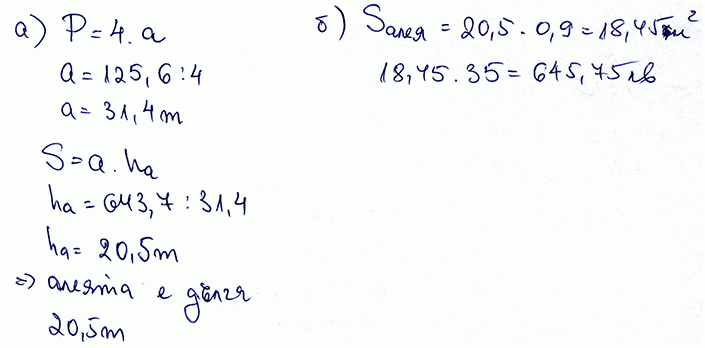 а) P = 4 . a
a = 125,6 : 4
a = 31,4 m
S = a . ha
ha = 643,7 : 31,4
ha = 20,5 m
=> алеята е дълга
20,5 m
б) Sалея = 20,5 . 0,9 = 18,45 m²
18,45 . 35 = 645,75 лв